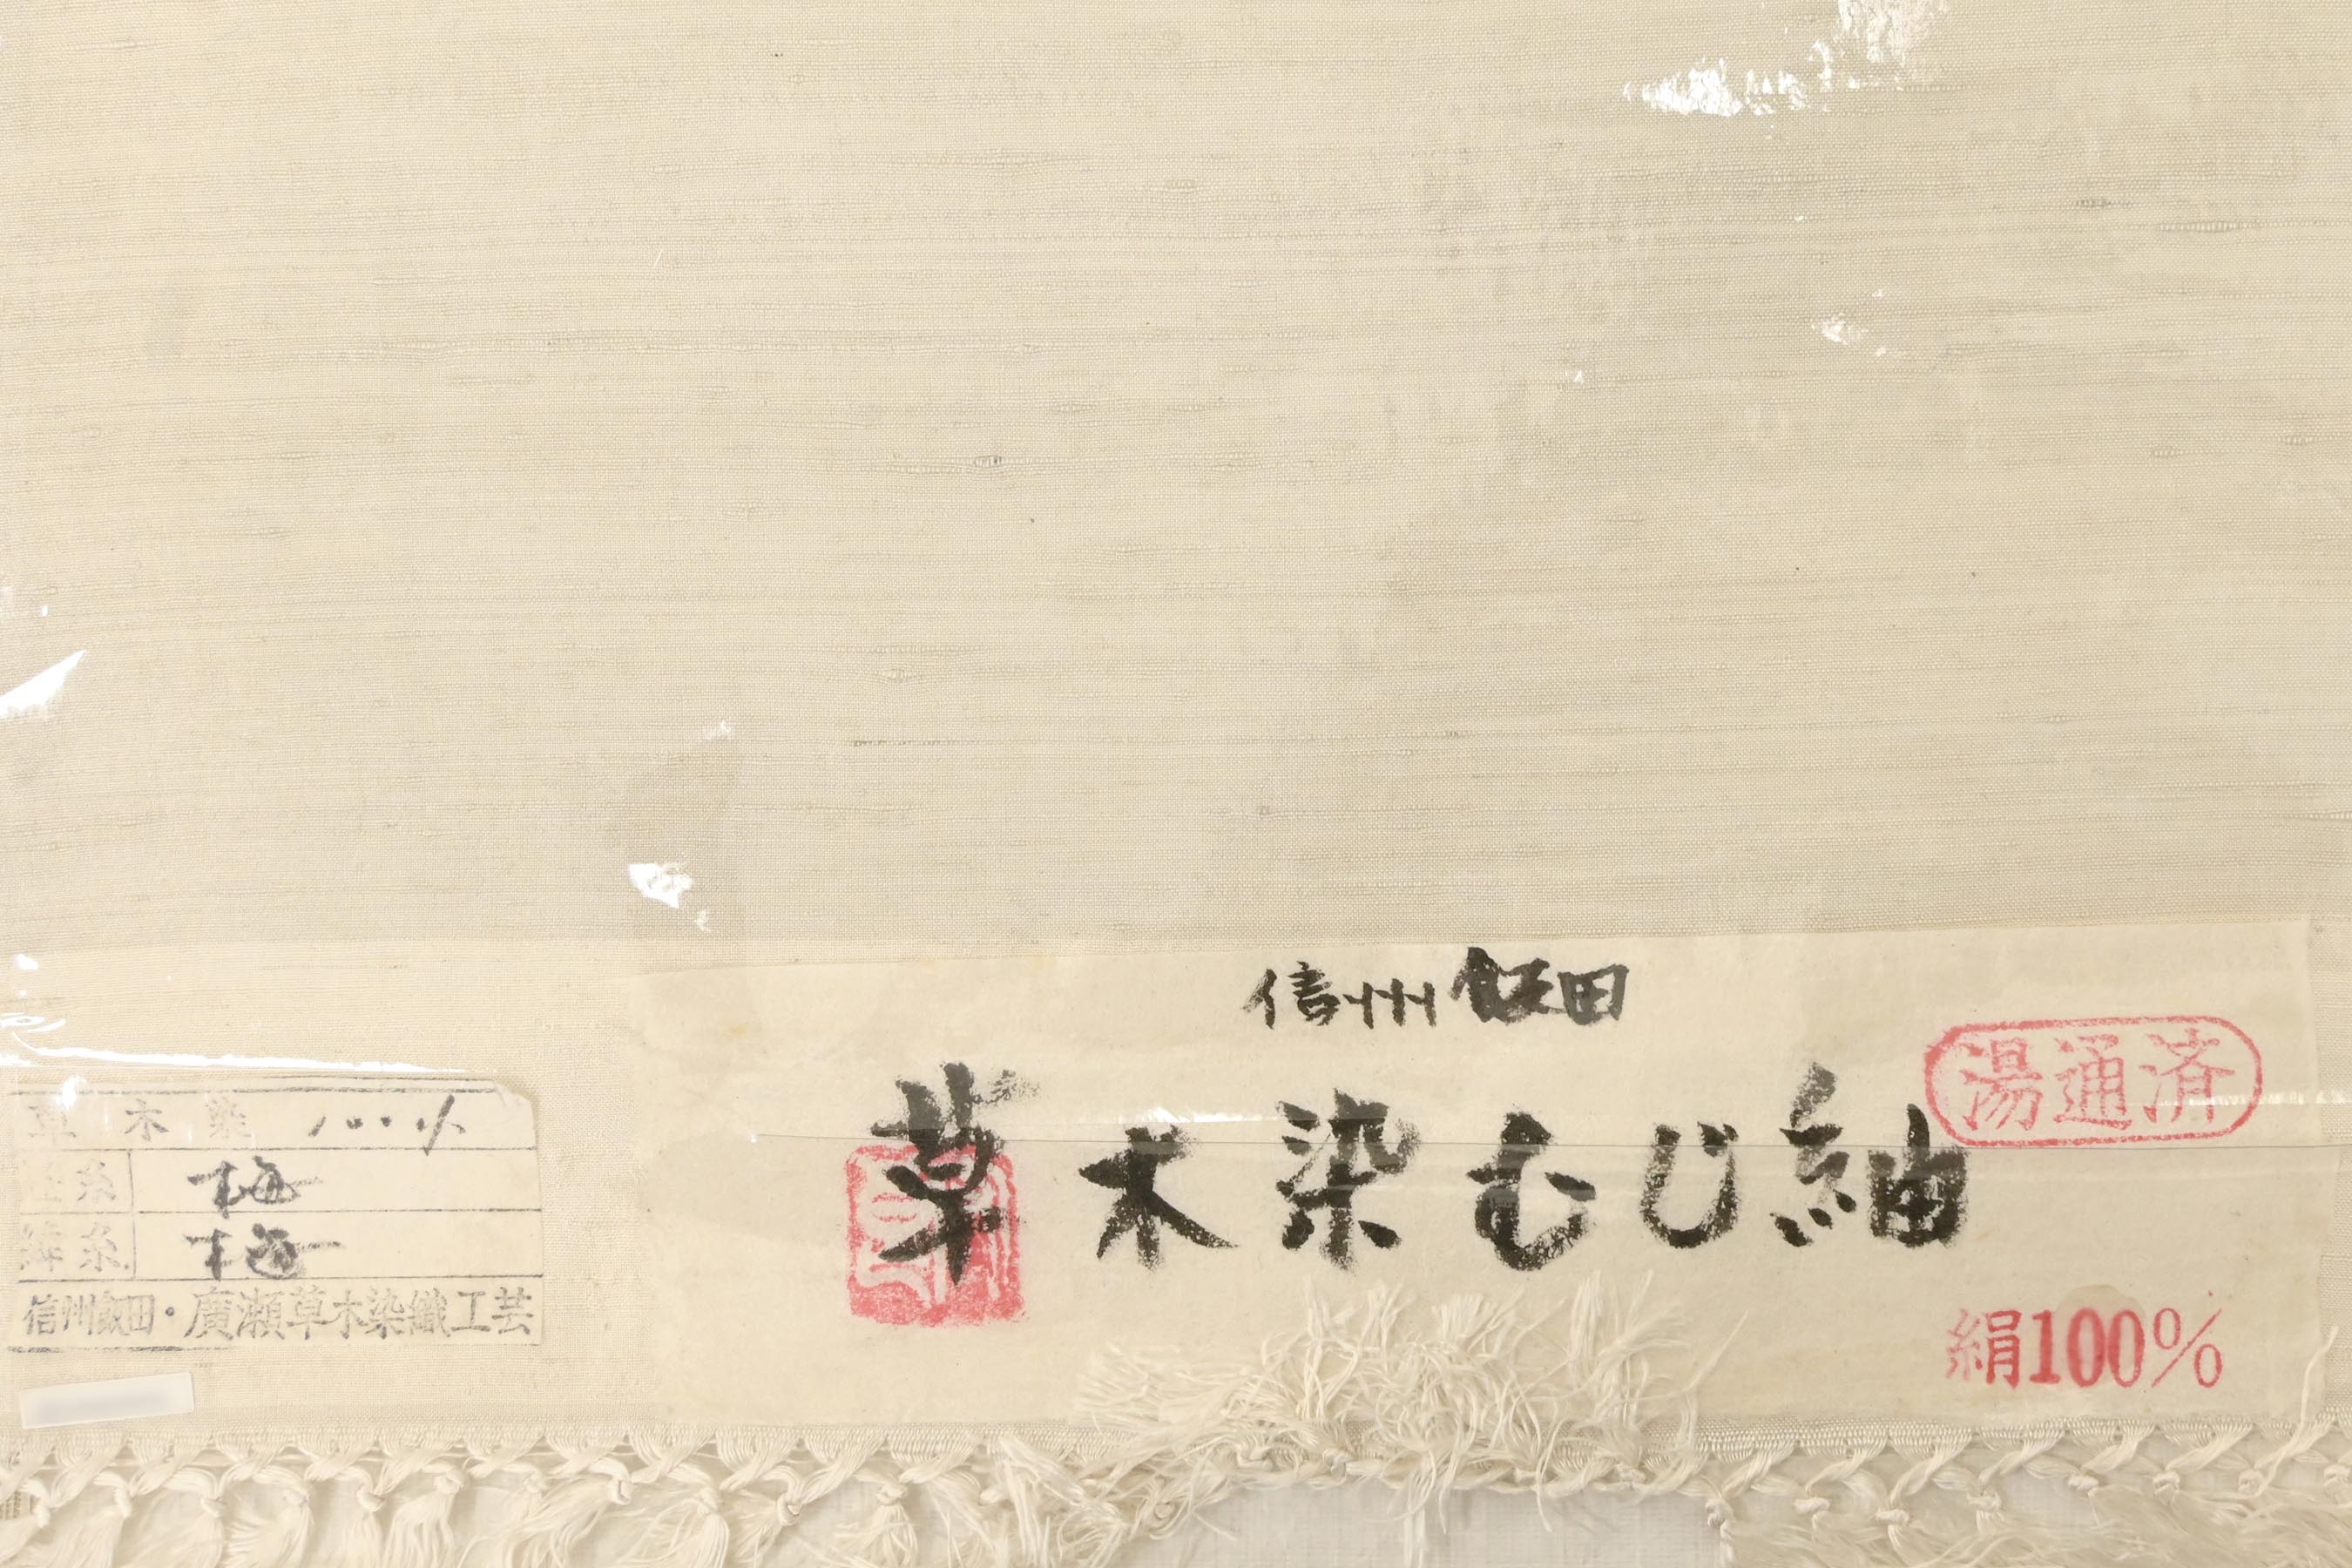 信州飯田
草木染むじ紬
湯通済
絹100%
草木染 100%
経糸 梅
緯糸 梅
信州飯田・廣瀬草木染織工芸